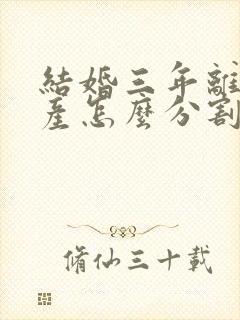 結婚三年離
產怎麼分割
脩仙三十載